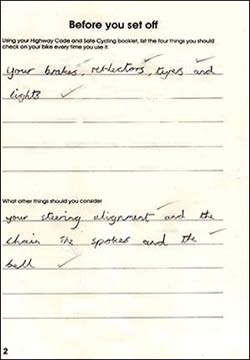 Before you set off
Using your Highway Code and Safe Cycling booklet, list the four things you should
check on your bike every time you use it.
your brakes, reflectors, tyres and
lights
What other things should you consider
your steering alignment and the
chain the spokes and the
bell
2